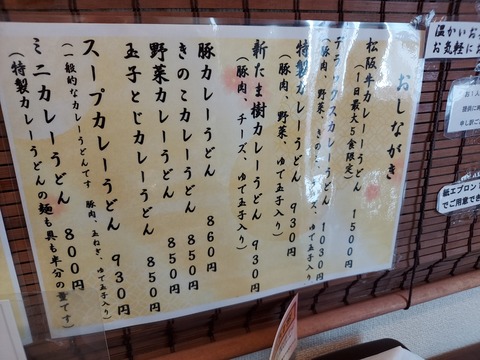 おしながき
松阪牛カレーうどん 1500円
(1日最大5食限定)
デラックスカレーうどん 1030円
(豚肉、野菜、きのこ、ゆで玉子入り)
特製カレーうどん 930円
(豚肉、野菜、ゆで玉子入り)
新たま樹カレーうどん 930円
(豚肉、チーズ、ゆで玉子入り)
豚カレーうどん 860円
きのこカレーうどん 850円
野菜カレーうどん 850円
玉子とじカレーうどん 850円
スープカレーうどん 930円
(一般的なカレーうどんです 豚肉、玉ねぎ、ゆで玉子入り)
ミニカレーうどん 800円
(特製カレーうどんの麺も具も半分の量です)
温かいお
お気軽にお
お1人
紙エプロン
でご用意でき